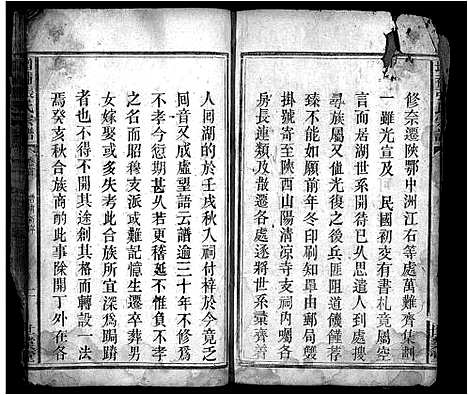 修奈遷陝鄂中洲江右等處萬難齊集劃
一雖光宣及　民國初叓有書札竟屬空
言而居湖世系開待已久思遣人到處搜
尋族屬又值光復之後兵匪阻道饑饉荐
臻不能如願前年冬印刷知單由郵局雙
掛號寄至陝西山陽清凉寺支祠內囑各
房長連類及散遷各處逐將世系彙齊善
人囘湖的於壬戌秋入祠付梓於今竟乏
囘音又成虛望語云譜逾三十年不修為
不孝今愆期甚久若更稽延不特少亡男
之名而昭穆支派或難記憶生遷卒葬男
女嫁娶或多失考此合族所宜深為跼蹐
者也不得不開其途創其格而轉設一法
焉癸亥秋合族商酌此事除開丁外在各